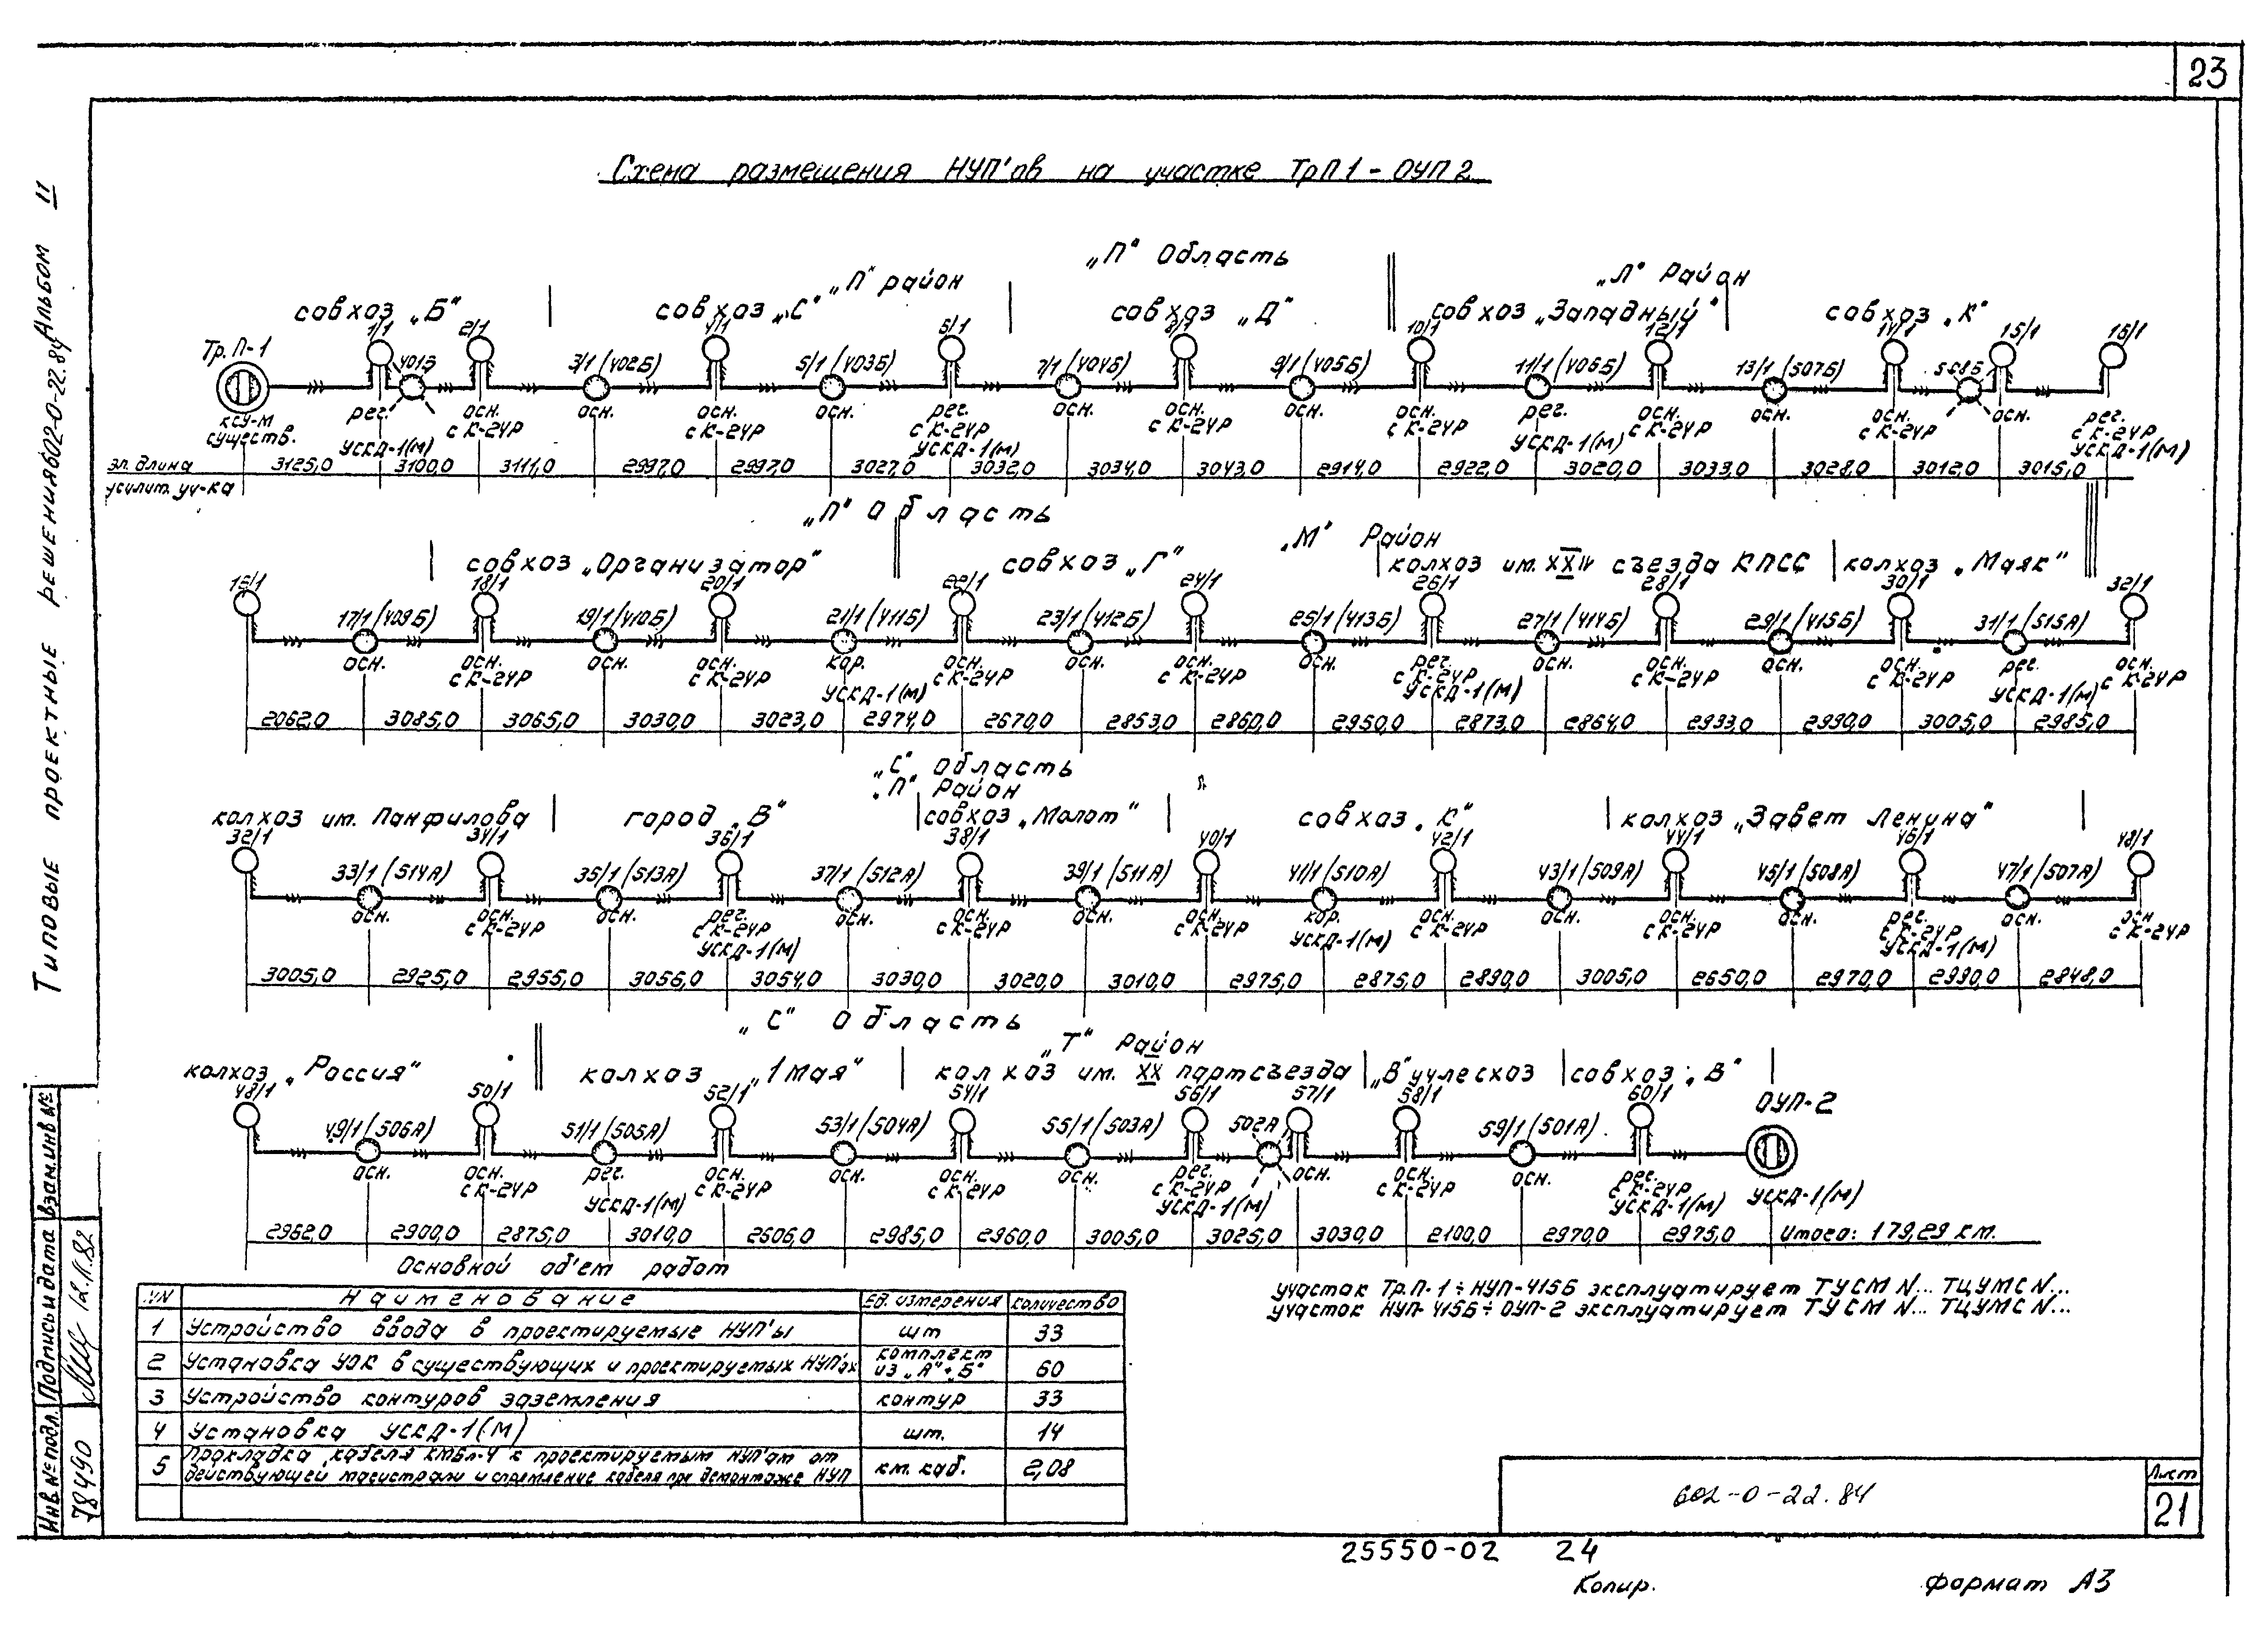 23
Схема размещения НУП'ов на участке ТрП1 - ОУП2
„П" Область
„П" район
„Л" Район
совхоз „Б"
совхоз „С"
совхоз „Д"
совхоз „Западный"
совхоз „К"
Тр. П-1
1/1
2/1
4/1
8/1
10/1
12/1
14/1
15/1
16/1
3/1 (402Б)
5/1 (403Б)
7/1 (404Б)
9/1 (405Б)
11/1 (406Б)
13/1 (507Б)
508Б
КСУ-М
существ.
рег.
УСКД-1(М)
осн.
с К-24Р
осн.
осн.
с К-24Р
осн.
рег.
с К-24Р
УСКД-1(М)
осн.
осн.
с К-24Р
осн.
осн.
с К-24Р
рег.
УСКД-1(М)
осн.
с К-24Р
осн.
осн.
с К-24Р
осн.
рег.
с К-24Р
УСКД-1(М)
эл. длина
усилит. уч-ка
3125,0 3100,0 3111,0 2997,0 2997,0 3027,0 3032,0 3034,0 3043,0 2914,0 2922,0 3020,0 3033,0 3028,0 3012,0 3015,0
„П" Область
„М" Район
совхоз „Организатор"
совхоз „Г"
колхоз им. XXIV съезда КПСС
колхоз „Маяк"
18/1
20/1
22/1
24/1
26/1
28/1
30/1
32/1
17/1 (409Б)
19/1 (410Б)
21/1 (411Б)
23/1 (412Б)
25/1 (413Б)
27/1 (414Б)
29/1 (415Б)
31/1 (515А)
осн.
осн.
с К-24Р
осн.
осн.
с К-24Р
кор.
УСКД-1(М)
осн.
с К-24Р
осн.
осн.
с К-24Р
осн.
рег.
с К-24Р
УСКД-1(М)
осн.
осн.
с К-24Р
осн.
осн.
с К-24Р
рег.
УСКД-1(М)
осн.
с К-24Р
2062,0 3085,0 3065,0 3030,0 3023,0 2974,0 2670,0 2853,0 2860,0 2950,0 2873,0 2864,0 2933,0 2990,0 3005,0 2985,0
„С" Область
„П" Район
колхоз им. Панфилова
город „В"
совхоз „Молот"
совхоз „К"
колхоз „Завет Ленина"
32/1
34/1
36/1
38/1
40/1
42/1
44/1
46/1
48/1
33/1 (514А)
35/1 (513А)
37/1 (512А)
39/1 (511А)
41/1 (510А)
43/1 (509А)
45/1 (508А)
47/1 (507А)
осн.
осн.
с К-24Р
осн.
рег.
с К-24Р
УСКД-1(М)
осн.
осн.
с К-24Р
осн.
осн.
с К-24Р
кор.
УСКД-1(М)
осн.
с К-24Р
осн.
осн.
с К-24Р
осн.
рег.
с К-24Р
УСКД-1(М)
осн.
осн
с К-24Р
3005,0 2925,0 2955,0 3056,0 3054,0 3030,0 3020,0 3010,0 2975,0 2875,0 2890,0 3005,0 2650,0 2970,0 2990,0 2848,0
„С" Область
„Т" Район
колхоз „Россия"
колхоз „1 мая"
колхоз им. XX партсъезда
„В" учлесхоз
совхоз „В"
48/1
50/1
52/1
54/1
56/1
57/1
58/1
60/1
ОУП-2
49/1 (506А)
51/1 (505А)
53/1 (504А)
55/1 (503А)
502А
59/1 (501А)
осн.
осн.
с К-24Р
рег.
УСКД-1(М)
осн.
с К-24Р
осн.
осн.
с К-24Р
осн.
рег.
с К-24Р
УСКД-1(М)
осн.
осн.
с К-24Р
осн.
рег.
с К-24Р
УСКД-1(М)
УСКД-1(М)
2962,0 2900,0 2875,0 3010,0 2606,0 2985,0 2960,0 3005,0 3025,0 3030,0 2100,0 2970,0 2975,0 Итого: 179,29 км.
участок Тр.П-1÷НУП-415Б эксплуатирует ТУСМ N... ТЦУМС N...
участок НУП-415Б÷ОУП-2 эксплуатирует ТУСМ N... ТЦУМС N...
Основной об'ем работ
NN Наименование Ед. измерения количество
1 Устройство ввода в проектируемые НУП'ы шт 33
2 Установка УОК в существующих и проектируемых НУП'ах комплект из „А"+„Б" 60
3 Устройство контуров заземления контур 33
4 Установка УСКД-1(М) шт. 14
5 Прокладка кабеля КМБл-4 к проектируемым НУП'ам от
действующей магистрали и спрямление кабеля при демонтаже НУП км. каб. 2,08
602-0-22.84
Лист
21
25550-02 24
Копир.
Формат А3
Типовые проектные решения 602-0-22.84 Альбом II
Инв. № подл. Подпись и дата Взам. инв №
78490
12.11.82